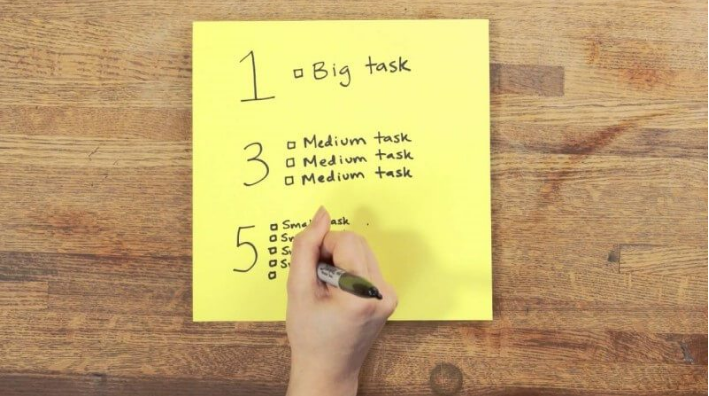 1 Big task
3 Medium task
Medium task
Medium task
5 Small task